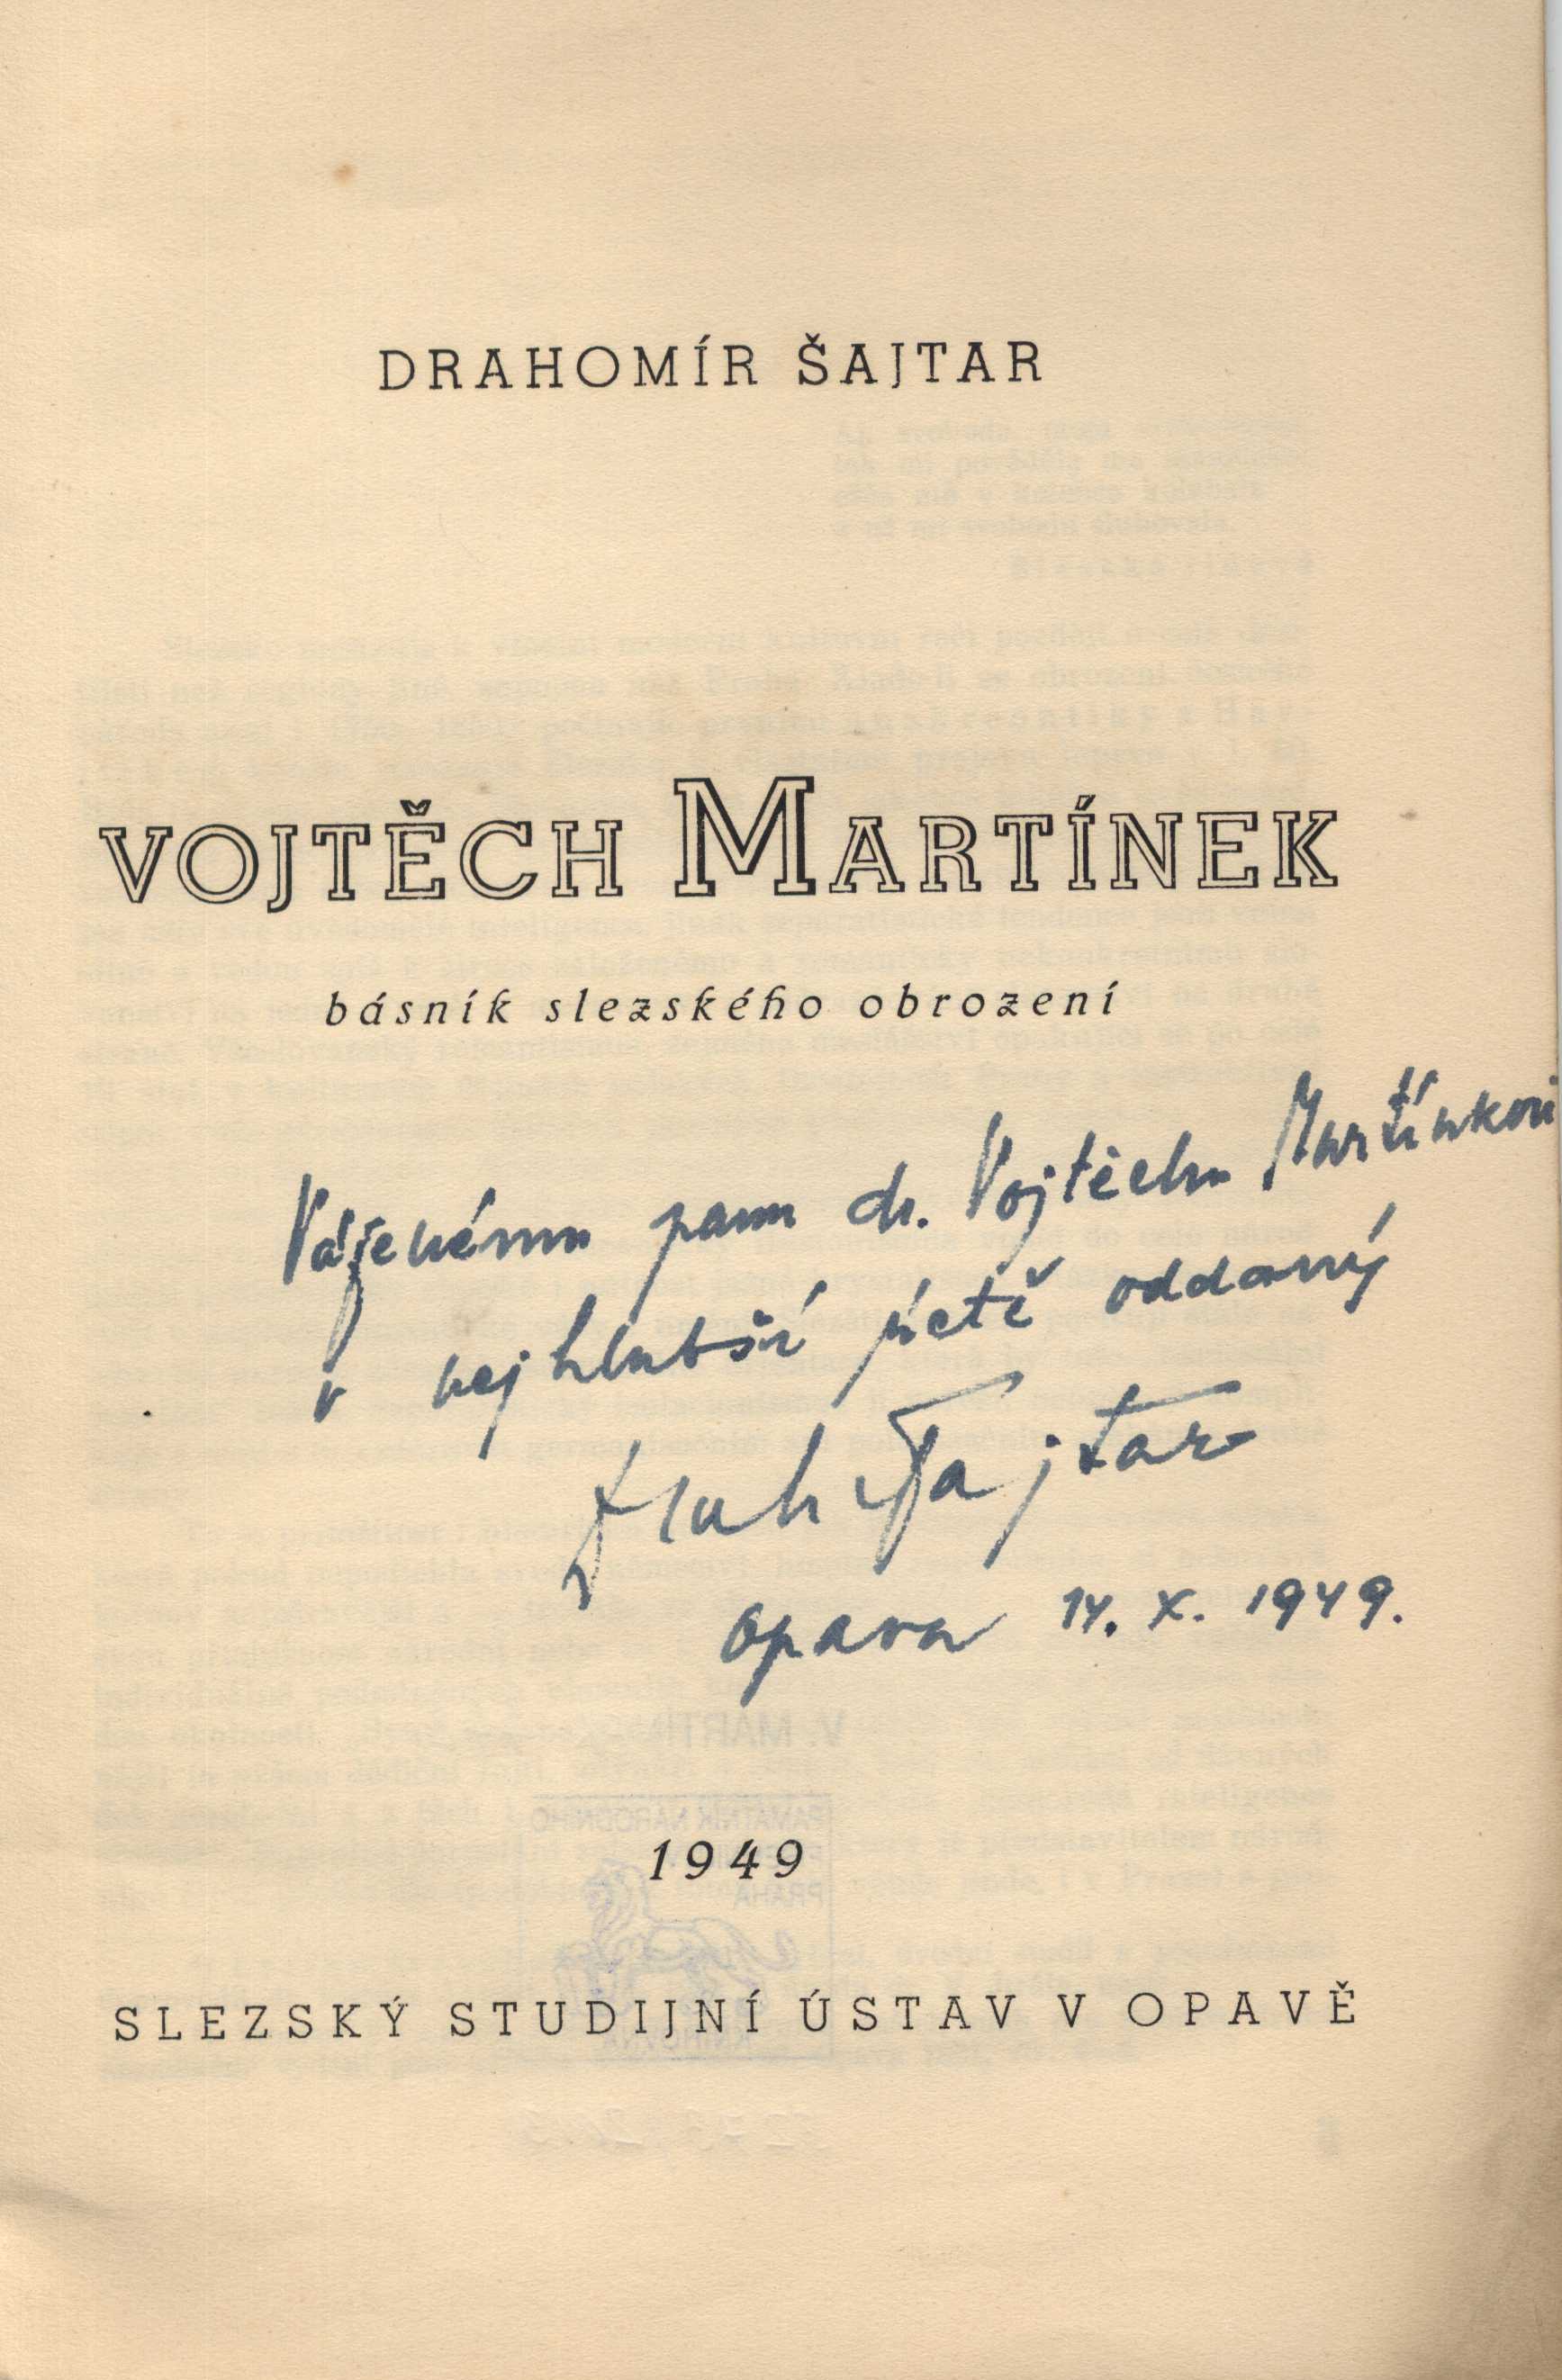 DRAHOMÍR ŠAJTAR
VOJTĚCH MARTÍNEK
básník slezského obrození
Váženému panu dr. Vojtěchu Martínkovi
v nejhlubší úctě oddaný
Drah Šajtar
Opava 14. X. 1949.
1949
SLEZSKÝ STUDIJNÍ ÚSTAV V OPAVĚ